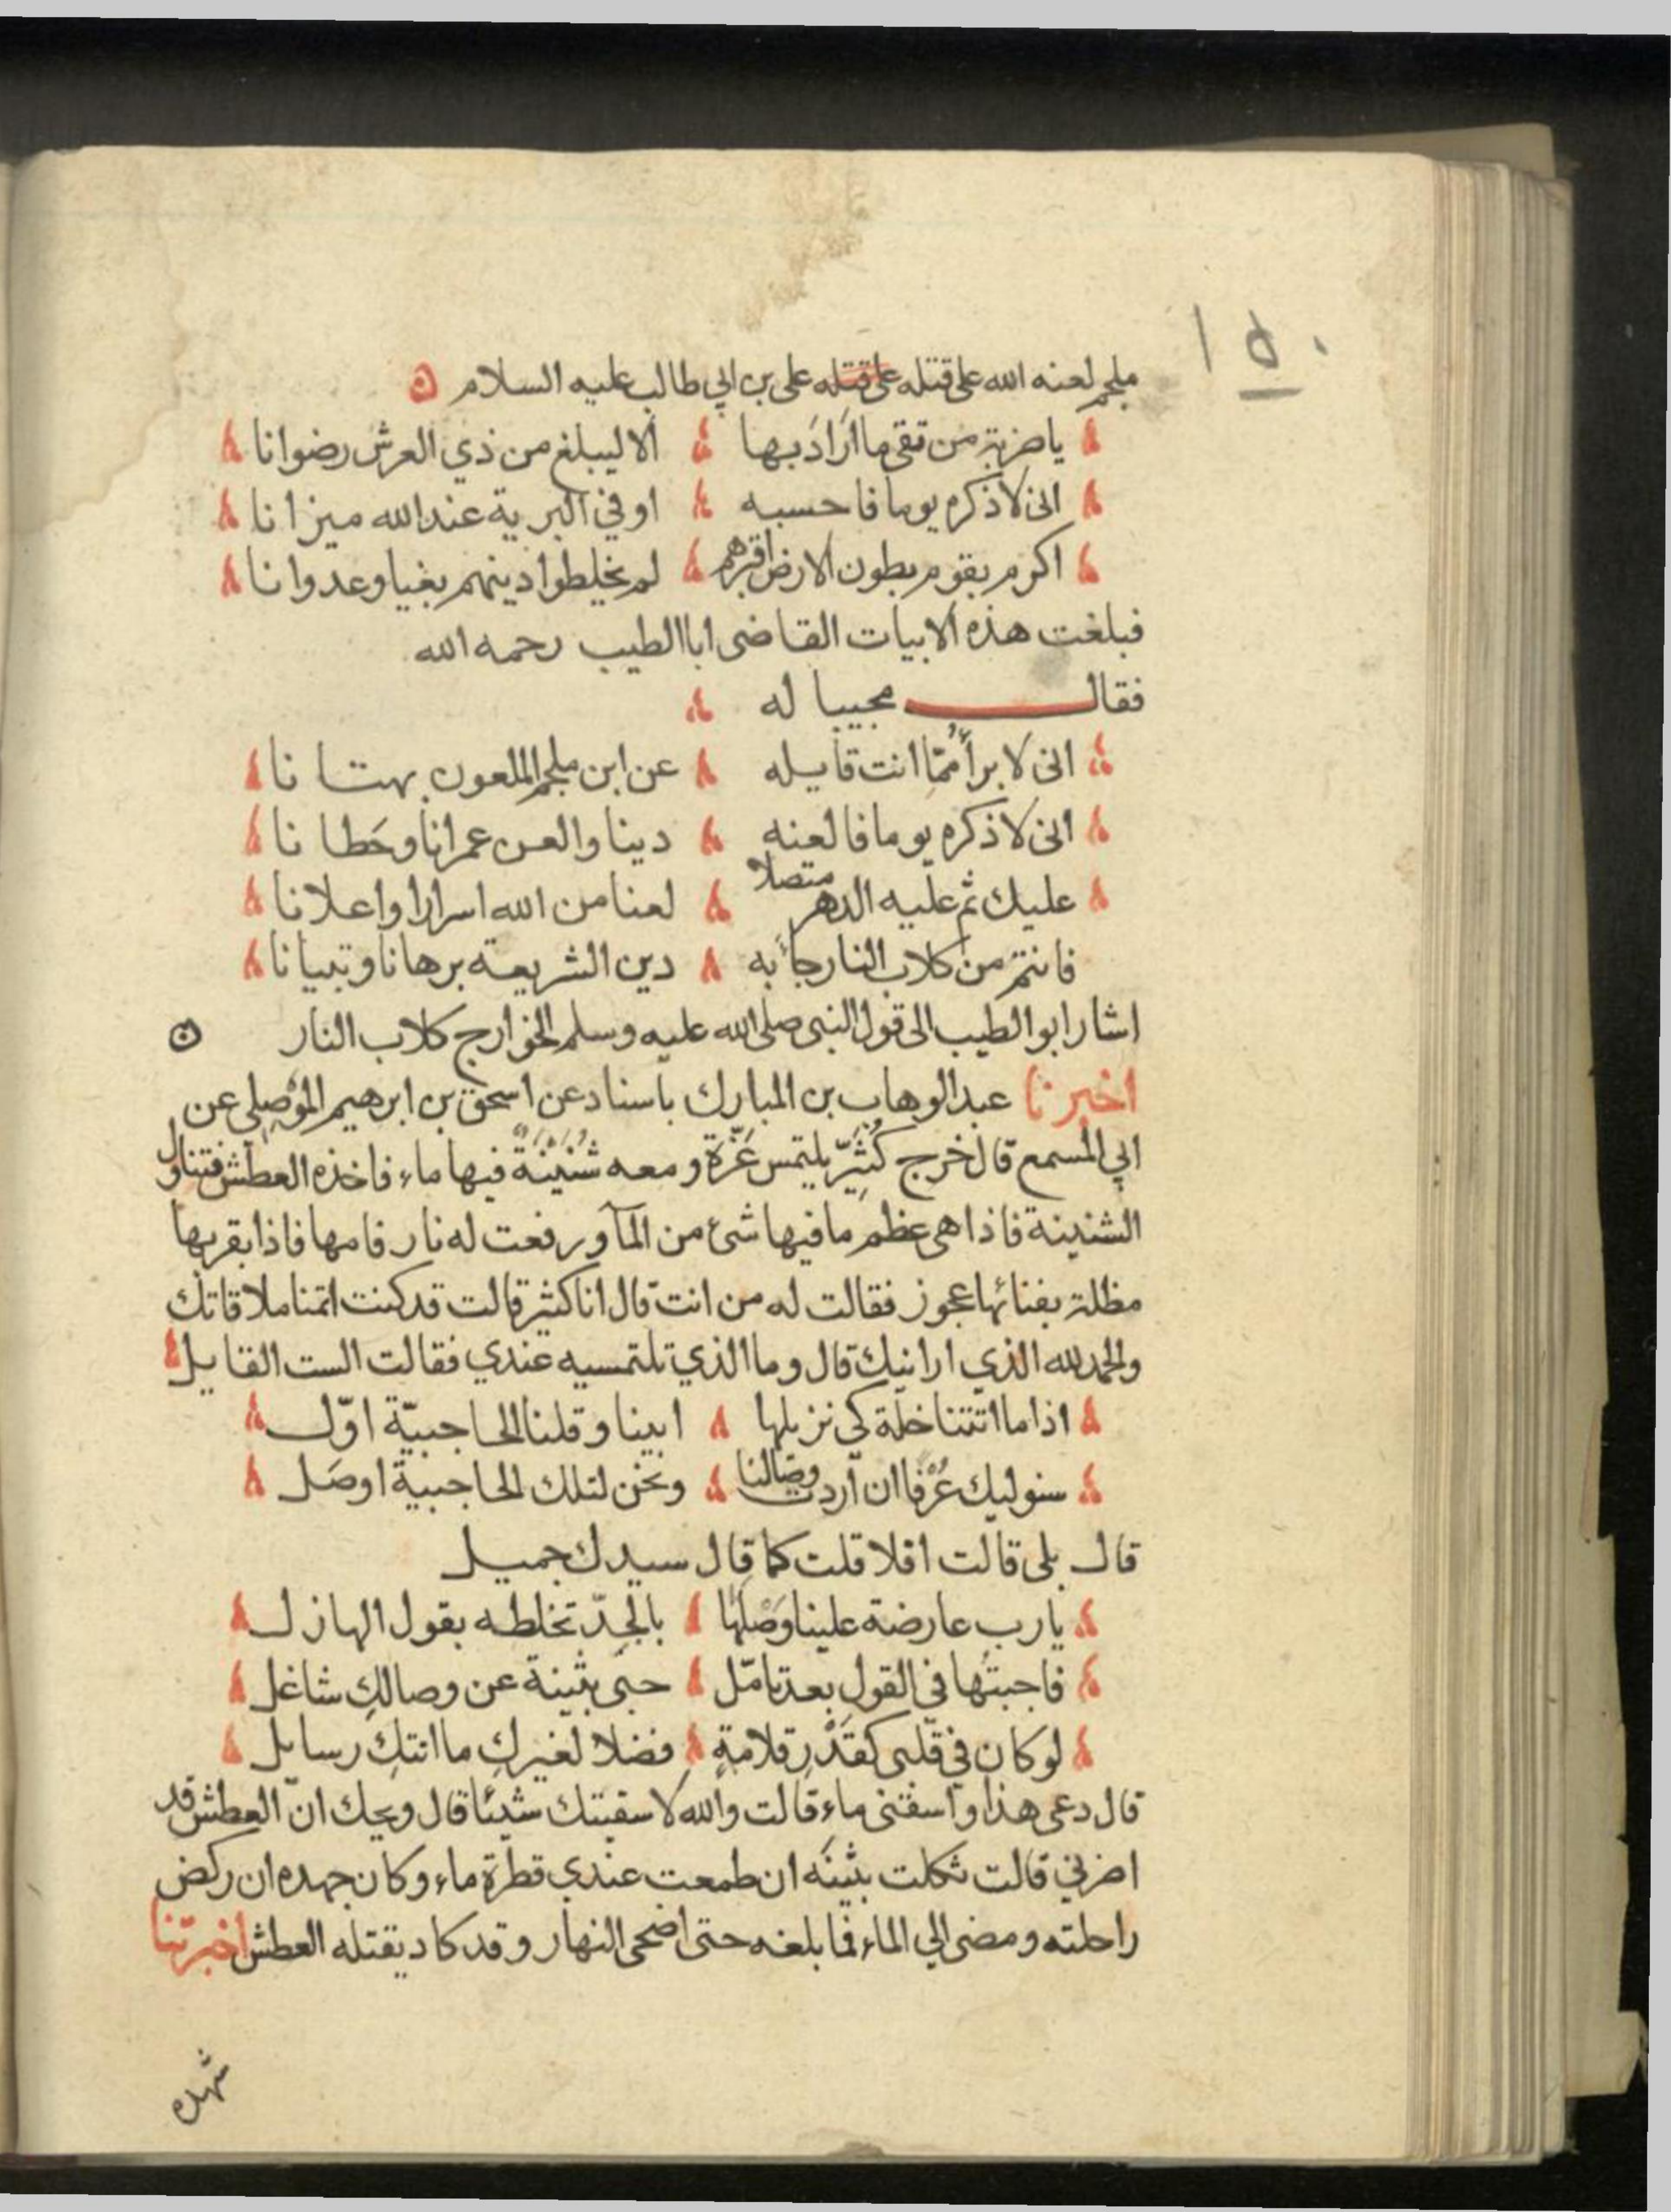 ١٥٠
ملجم لعنه الله على قتله على قتله على بن ابي طالب عليه السلام
ياضربة من تقي ما اَرَادَ بها الا ليبلغ من ذي العرش رضوانا
انى لاذكره يوما فاحسبه اوفي البرية عند الله ميزانا
اكرم بقوم بطون الارض اقبرهم لم يخلطوا دينهم بغيا وعدوانا
فبلغت هذه الابيات القاضى ابا الطيب رحمه الله
فقال مجيبا له
انى لابرأُ ممّا انت قايله عن ابن ملجم الملعون بهتانا
انى لاذكره يوما فالعنه دينا والعن عمرانا وحَطانا
عليك ثم عليه الدهر متصلا لعنا من الله اسرارا واعلانا
فانتم من كلاب النار جاء به دين الشريعة برهانا وتبيانا
اشار ابو الطيب الى قول النبى صلى الله عليه وسلم الخوارج كلاب النار
اخبرنا عبد الوهاب بن المبارك باسناد عن اسحق بن ابرهيم الموْصِلى عن
ابي المسمع قال خرج كُثيّر يلتمس عَزّة ومعه شُنَيْنَةٌ فيها ماء فاخذه العطش فتناول
الشنينة فاذا هى عظم ما فيها شئ من المآ ورفعت له نار فامها فاذا بقربها
مظلة بفنائها عجوز فقالت له من انت قال انا كثير قالت قد كنت اتمنا ملاقاتك
والحمد لله الذي ارانيك قال وما الذي تلتمسيه عندي فقالت الست القايل
اذا ما اتتنا خلة كي نزيلها ابينا وقلنا الحاجبيّة اوّل
سنوليك عُرْفا ان اردت وصالنا ونحن لتلك الحاجبية اوصَل
قال بلى قالت افلا قلت كما قال سيدك جميل
يارب عارضة علينا وَصْلَها بالجِدّ تخلطه بقول الهازل
فاجبتُها في القول بعد تامّل حبى بثينة عن وصالكِ شاغل
لو كان في قلبى كقَدْرِ قلامةٍ فضلا لغيرك ما اتتكِ رسايل
قال دعى هذا واسقنى ماء قالت والله لا سقيتك شيئا قال ويحك انّ العطش قد
اضرني قالت ثكلت بثينه ان طمعت عندي قطرة ماء وكان جهده ان ركض
راحلته ومضى الي الماء فما بلغه حتى اضحى النهار وقد كاد يقتله العطش اخبرتنا
شهده